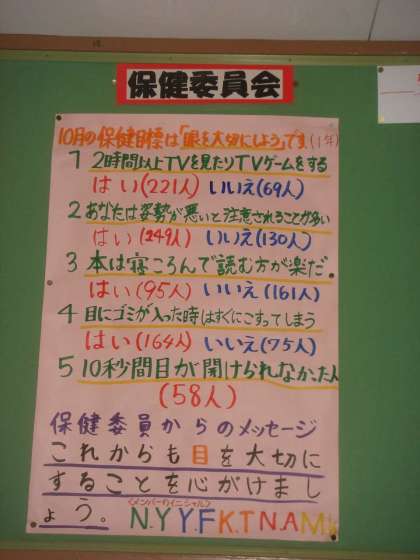 保健委員会
10月の保健目標は「眼を大切にしよう」です(1年)
1 2時間以上TVを見たりTVゲームをする
はい(221人) いいえ(69人)
2 あなたは姿勢が悪いと注意されることが多い
はい(249人) いいえ(130人)
3 本は寝ころんで読む方が楽だ
はい(95人) いいえ(161人)
4 目にゴミが入った時はすぐにこすってしまう
はい(164人) いいえ(75人)
5 10秒間目が開けられなかった人
(58人)
保健委員からのメッセージ
これからも目を大切に
することを心がけまし
ょう。
<メンバーのイニシャル>
N.Y Y.F K.T N.A M.